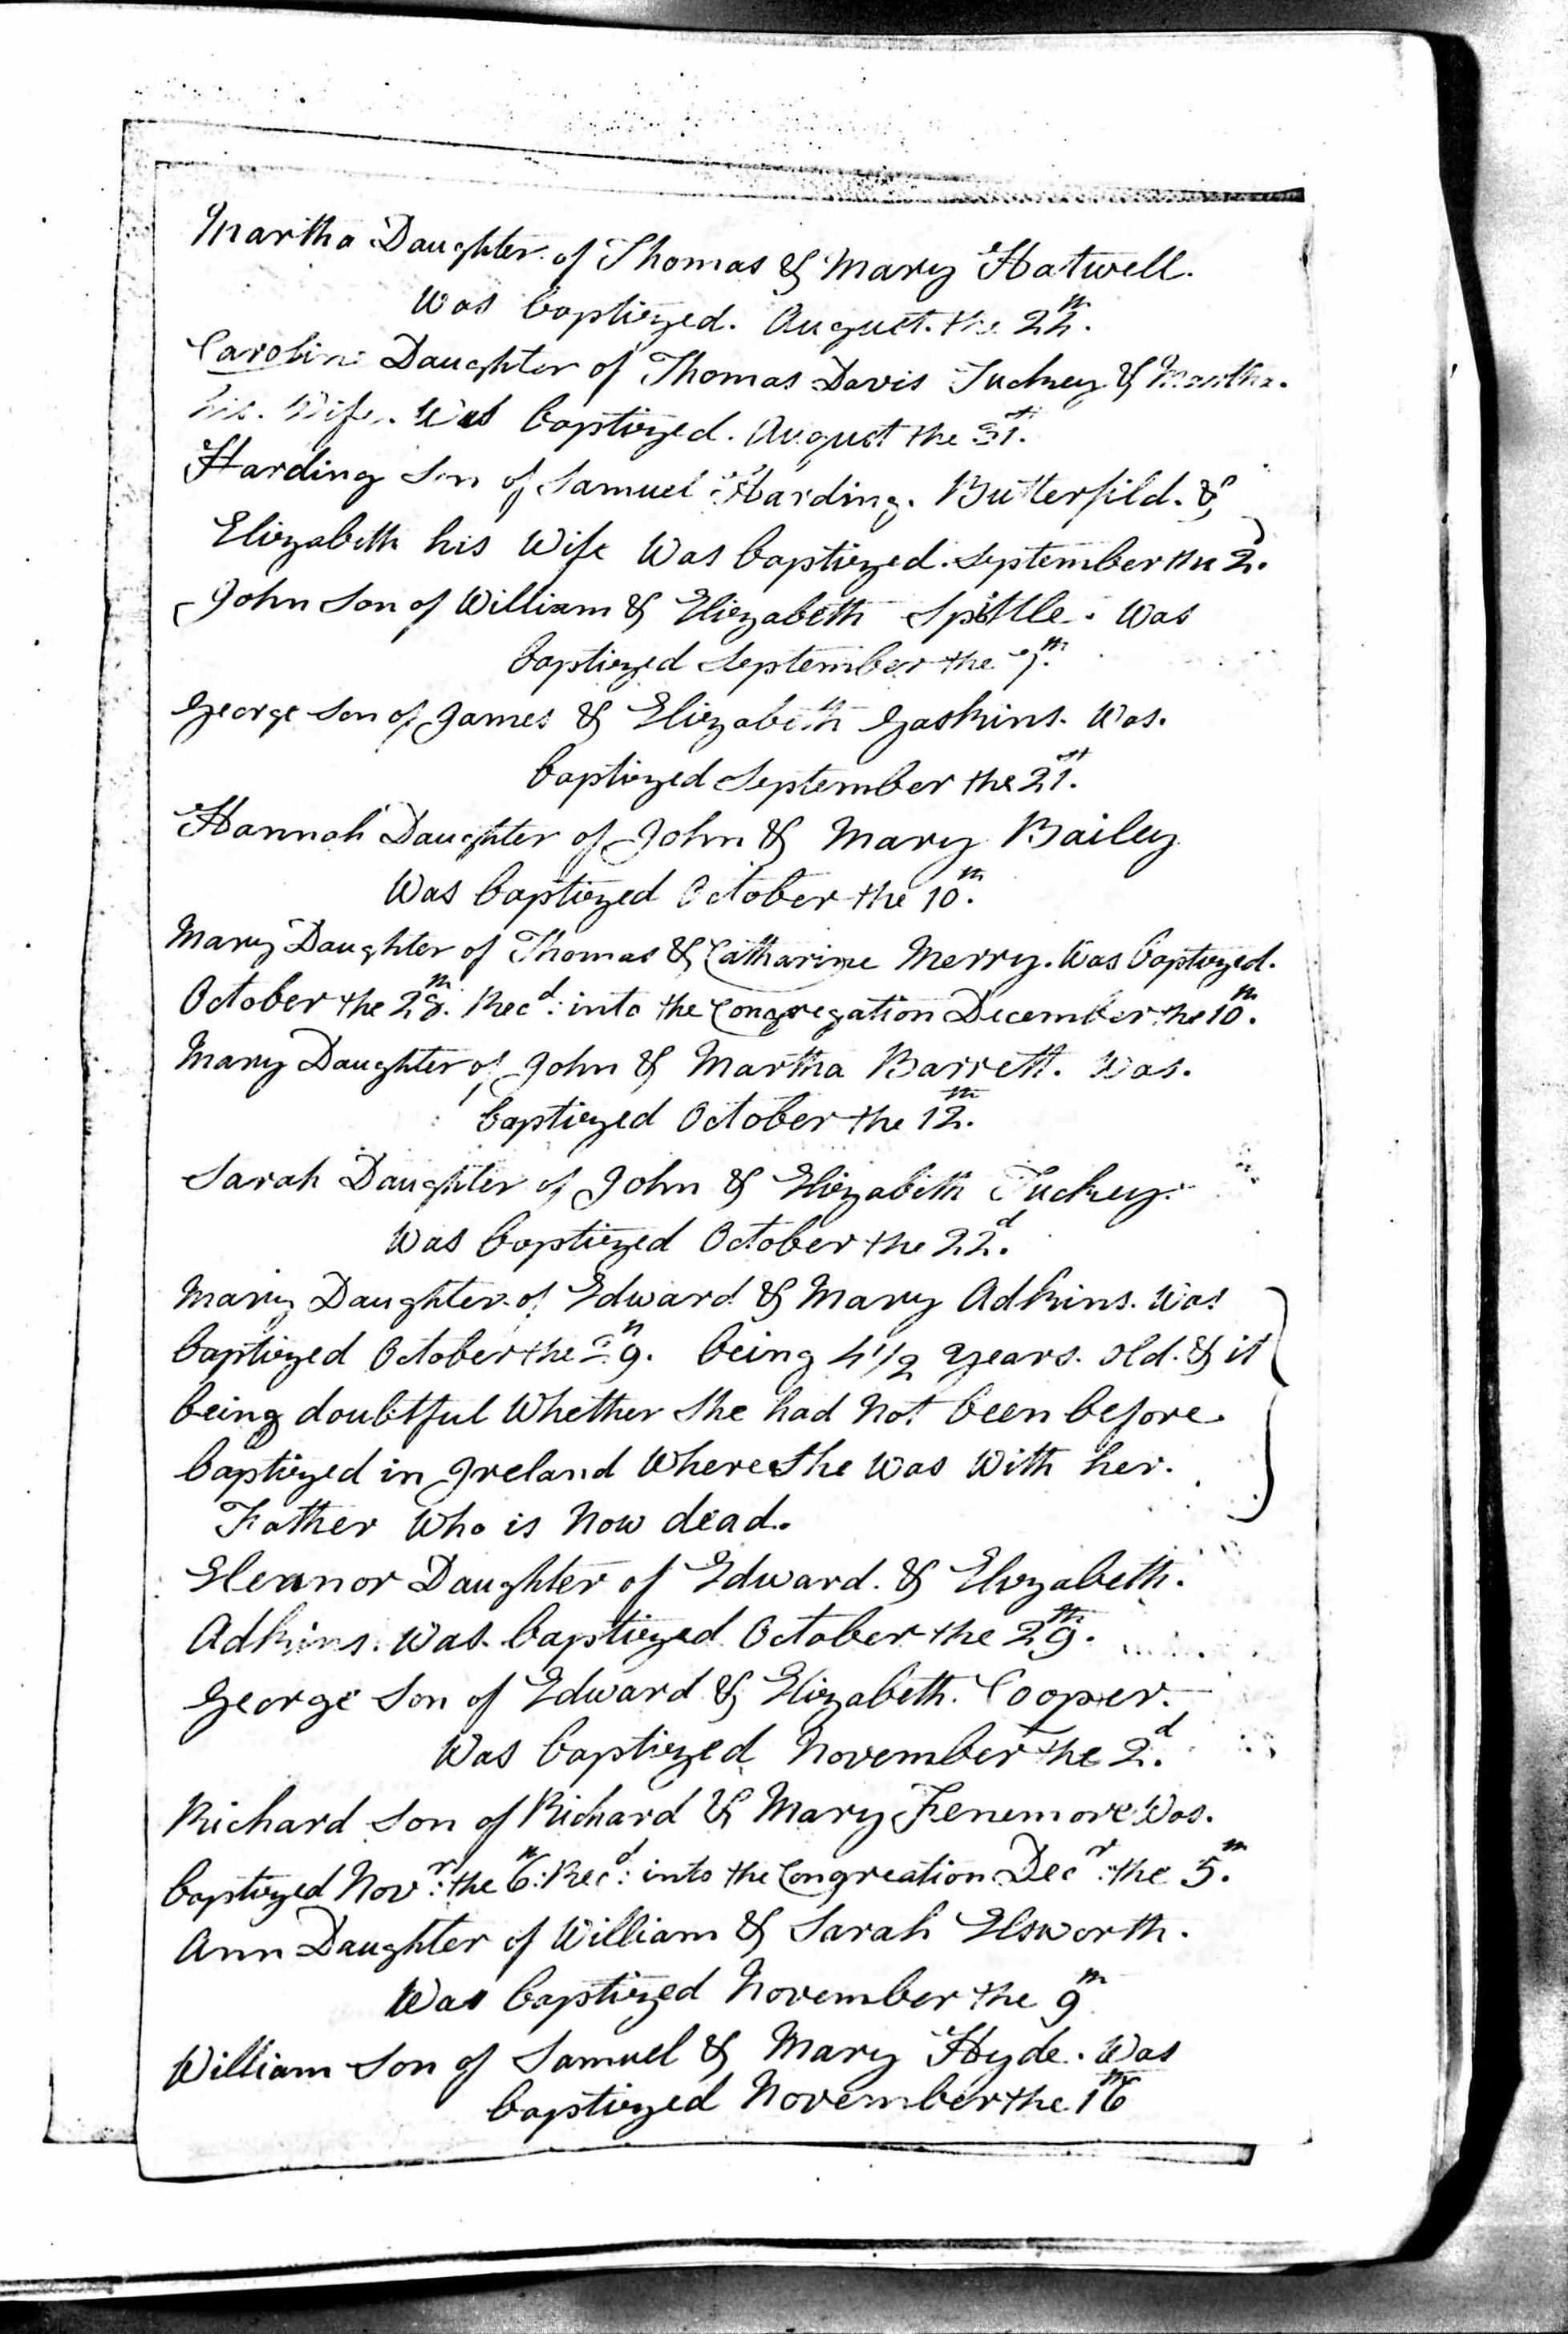 Martha Daughter of Thomas & Mary Hatwell.
Was baptized. August. the
Caroline Daughter of Thomas Davis Tuckey & Martha.
his. Wife. Was baptized. August the 31st.
Harding Son of Samuel Harding. Butterfild. &
Elizabeth his Wife Was baptized. September the 2.
John Son of William & Elizabeth Spittle. Was
baptized September the 7th.
George Son of James & Elizabeth Gaskins. Was.
baptized September the 21st.
Hannah Daughter of John & Mary Bailey
Was baptized October the 10th.
Mary Daughter of Thomas & Catharine Merry. Was baptized.
October the 28th. Recd: into the Congregation December the 10th.
Mary Daughter of John & Martha Barrett. Was.
baptized October the 12th.
Sarah Daughter of John & Elizabeth Tuckey.
Was baptized October the 22d.
Mary Daughter of Edward & Mary Adkins. Was
baptized October the 29th. being 4 1/2 years. old. & it
being doubtful Whether She had Not been before
baptized in Ireland Where She Was With her.
Father Who is Now dead.
Eleanor Daughter of Edward. & Elizabeth.
Adkins. Was. baptized October the 29th.
George Son of Edward & Elizabeth. Cooper.
Was baptized November the 2d.
Richard Son of Richard & Mary Fenemore Was.
baptized Novr: the 6th: Recd: into the Congreation Decr: the 5th.
Ann Daughter of William & Sarah Elsworth.
Was baptized November the 9th
William Son of Samuel & Mary Hyde. Was
baptized November the 16th